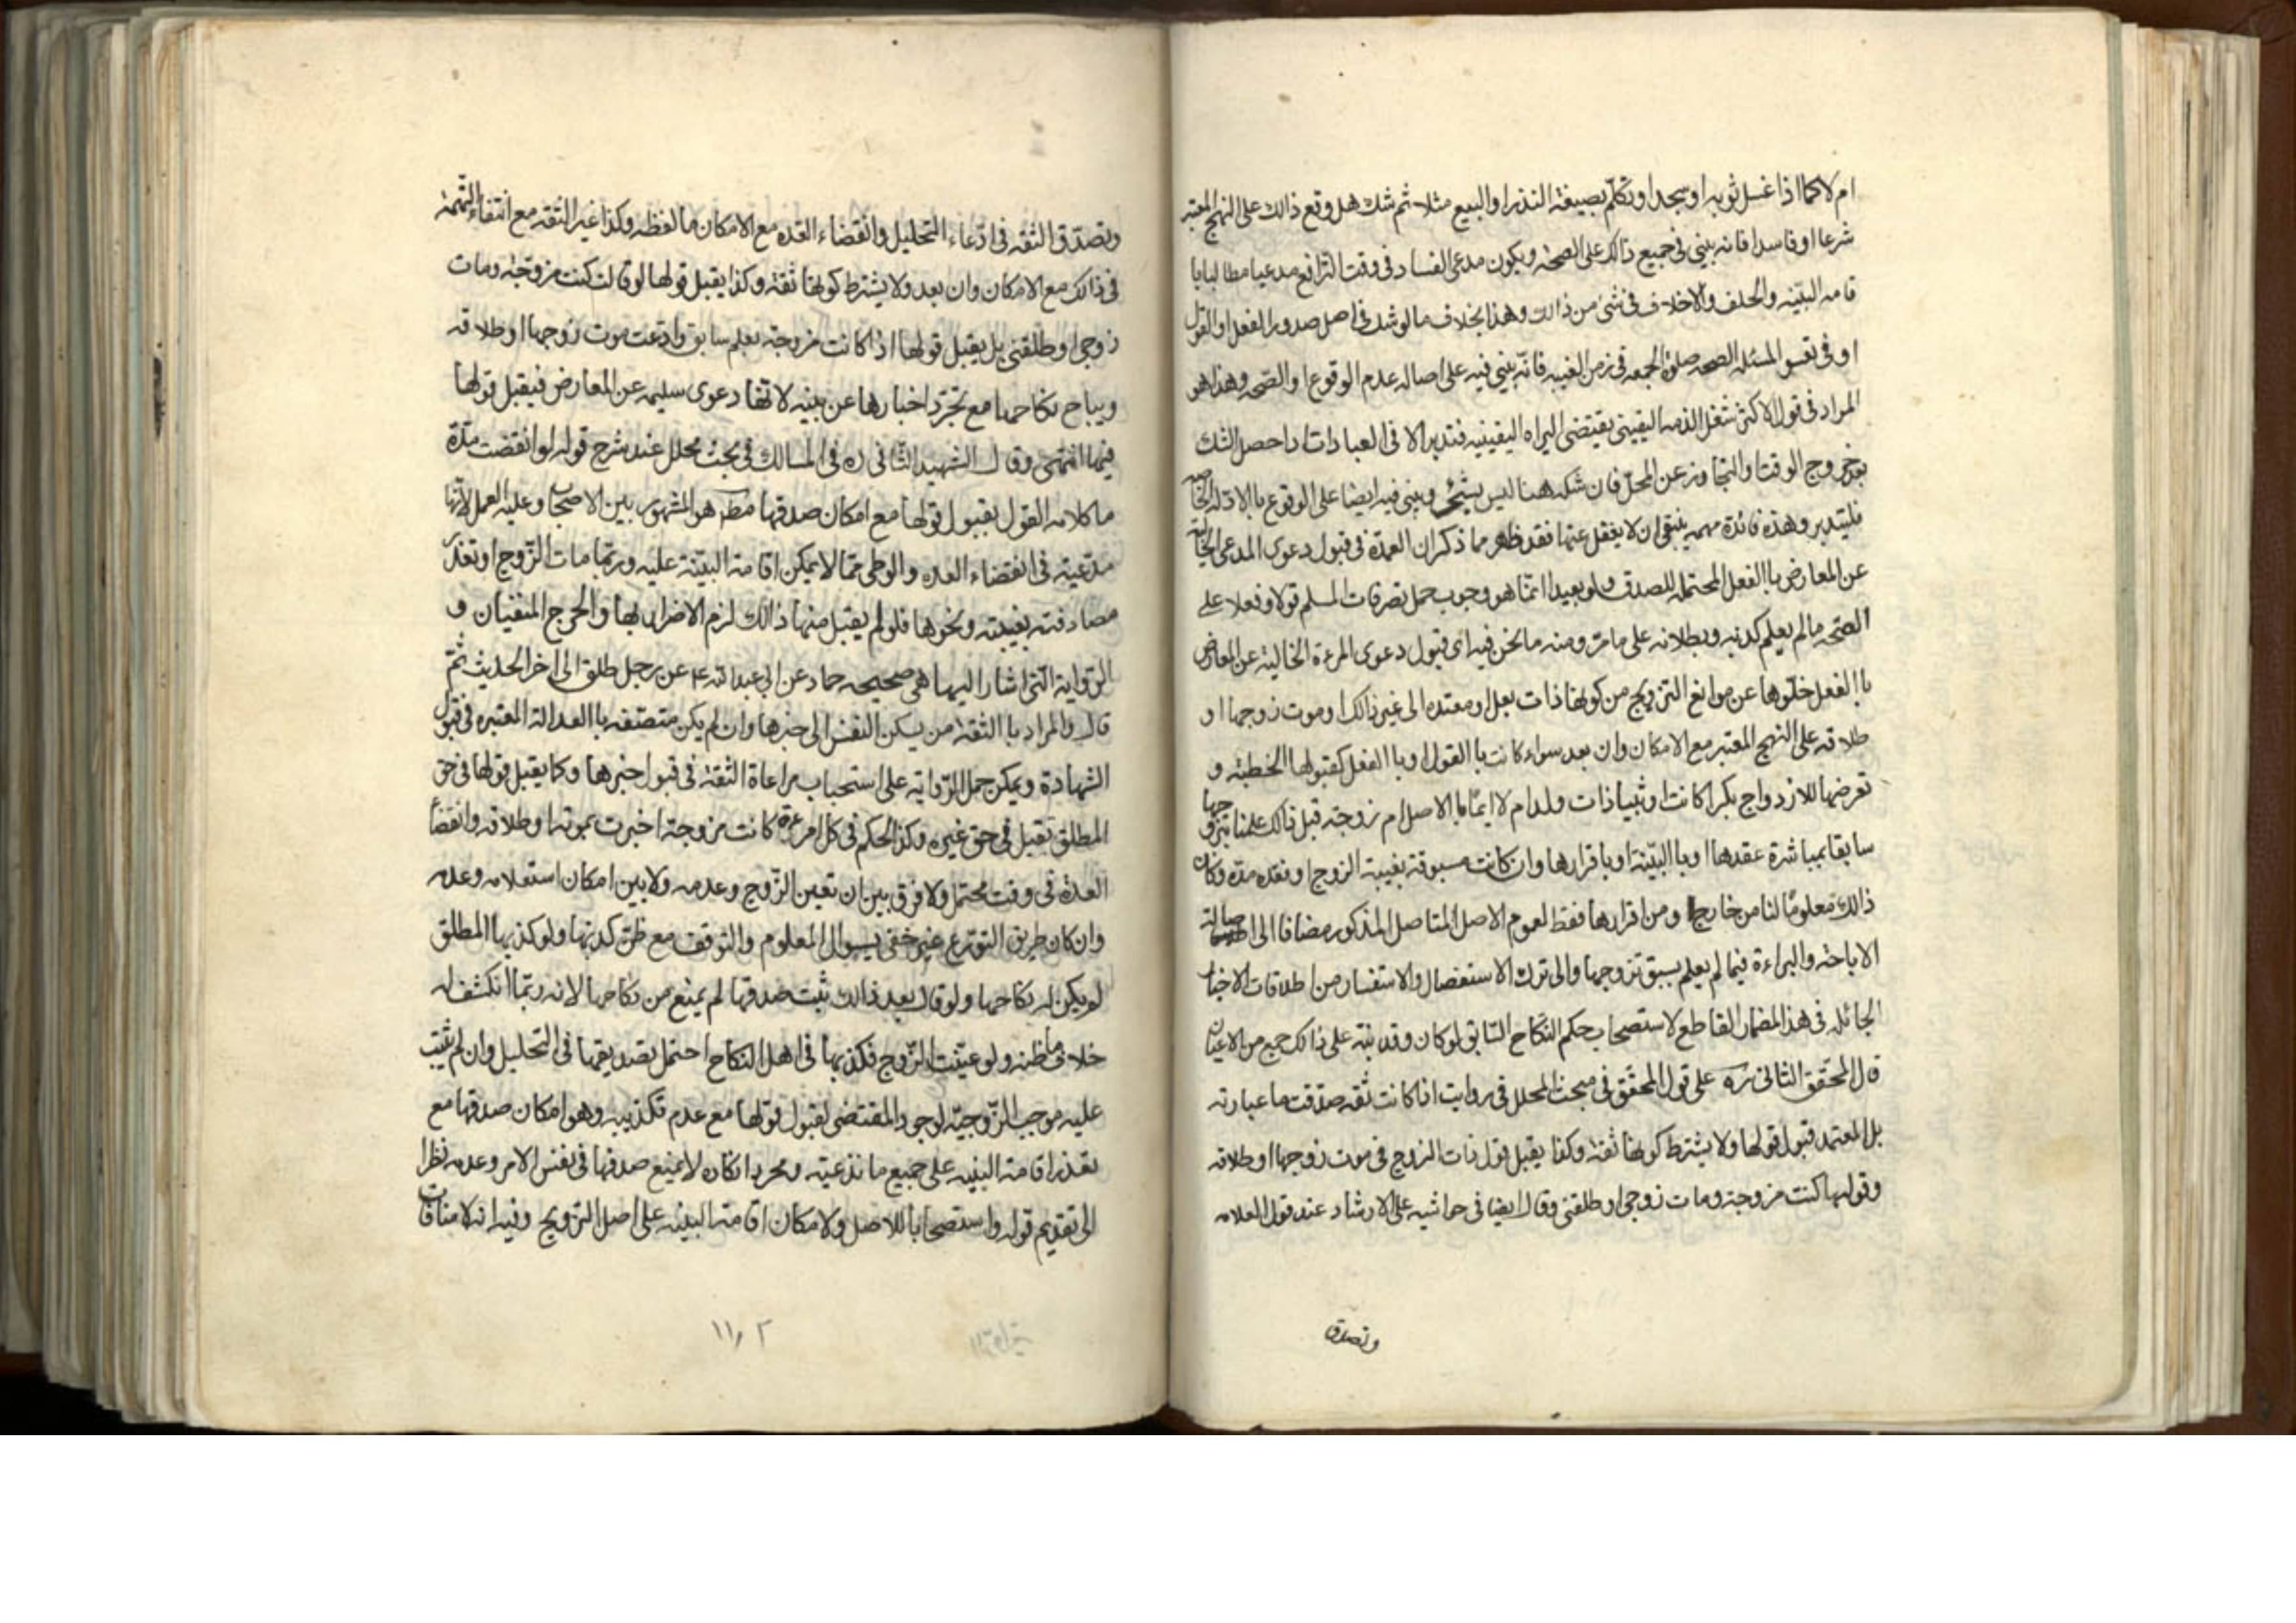 ام لا كما اذا غسل ثوبه او سجد او تكلم بصيغة النذر او البيع مثلا ثم شك هل وقع ذالك على النهج المعتبر
شرعا او فاسدا فانه يبني في جميع ذالك على الصحة ويكون مدعى الفساد في وقت الترافع مدعيا مطالبا با
قامه البيّنه والحلف والاخلاف في شئ من ذالك وهذا بخلاف ما لو شك في اصل صدور الفعل او القول
او في نفس المسئله الصحه صلوة الجمعه في زمن الغيبه فانّه يبني فيه على اصاله عدم الوقوع او الصحه وهذا هو
المراد في قول الاكثر شغل الذمه اليقيني يقتضى البراه اليقينيه فتدبر الا في العبادات اذا حصل الشك
بعد خروج الوقت او التجاوز عن المحل فان شكه هنا ليس بشئ ويبني فيه ايضا على الوقوع با الادله الخاصه
فليتدبر وهذه فائدة مهمه ينبغى ان لا يغفل عنها فقد ظهر مما ذكر ان العمدة في قبول دعوى المدعى الخالية
عن المعارض با الفعل المحتمله للصدق ولو بعيدا انما هو وجوب حمل تصرفات المسلم قولا وفعلا على
الصحه ما لم يعلم كذبه وبطلانه على ما مرّ ومنه ما نحن فيه اى قبول دعوى المرءة الخالية عن المعارض
با الفعل خلّوها عن موانع التزويج من كونها ذات بعل او معتده الى غير ذالك او موت زوجها او
طلاقه على النهج المعتبر مع الامكان وان بعد سواء كانت با القول او با الفعل كقبولها الخطبه و
تعرضها للازدواج بكرا كانت او ثيبا ذات ولد ام لا ايّما با الاصل ام زوجته قبل ذالك علمنا بتزوجها
سابقا بمباشرة عقدها او با البيّنة او باقرارها وان كانت مسبوقة بغيبة الزوج او فقده مدة وكان
ذالك معلومًا لنا من خارج او من اقرارها فقط لعموم الاصل المتاصل المذكور مضافا الى اصالة
الاباحة والبراءة فيما لم يعلم بسبق تزوجها والى ترك الاستفصال والاستفسار من اطلاقات الاخبار
الجائله في هذا المضمار القاطع لاستصحاب حكم النكاح السّابق لو كان وقد نبّه على ذالك جمع من الاعيان
قال المحقّق الثانى ره على قول المحقّق في مبحث المحلل في روايت اذا كانت ثقه صدّقت ما عبارته
بل المعتمد قبول قولها ولا يشترط كونها ثقة وكذا يقبل قول ذات الزوج في موت زوجها او طلاقه
وقولها كنت مزوجة ومات زوجى او طلقنى وقال ايضا في حواشيه على الارشاد عند قول العلامه
وتصدق
وتصدّق الثقه في ادّعاء التحليل وانقضاء العّده مع الامكان ما لفظه وكذا غير الثقه مع انتفاء التهّمة
في ذالك مع الامكان وان بعد ولا يشترط كونها ثقة وكذا يقبل قولها لو قالت كنت مزوّجة ومات
زوجى او طلقنى بل يقبل قولها اذا كانت مزوجة بعلم سابق وادّعت موت زوجها او طلاقه
ويباح نكاحها مع تجرّد اخبارها عن بينه لانّها دعوى سليمه عن المعارض فيقبل قولها
فيها انتهى وقال الشهيد الثّانى ره في المسالك في بحث محلل عند شرح قوله لو انقضت مدّة
ما كلامه القول بقبول قولها مع امكان صدقها مط هو المشهور بين الاصحاب وعليه العمل لانّها
مدّعية في انقضاء العده والوطى ممّا لا يمكن اقامة البيّنة عليه وربّما مات الزّوج او تعذر
مصادفته بغيبته ونحوها فلو لم يقبل منها ذالك لزم الاضرار بها والحرج المنفيان و
الرّواية الّتى اشار اليها هى صحيحه حماد عن ابي عبدالله ع عن رجل طلق الى اخر الحديث ثمّ
قال والمراد با الثقة من يسكن النفس الى خبرها وان لم يكن متصفه با العدالة المعتبره في قبول
الشهادة ويمكن حمل الرّواية على استحباب مراعاة الثقة في قبول خبرها وكما يقبل قولها في حق
المطلق تقبل في حق غيره وكذا الحكم في كل امرءة كانت مزوجة اخبرت بموته او طلاقه وانقضاء
العدّة في وقت محتمل ولا فرق بين ان تعين الزّوج وعدمه ولا بين امكان استعلامه وعدمه
وان كان طريق التورّع غير خفى بسوال المعلوم والتوقف مع ظن كذبها ولو كذبها المطلق
لو يكن له نكاحها ولو قال بعد ذالك ثبت صدقها لم يمنع من نكاحها لانه ربّما انكشف له
خلاف ما ظنه ولو عيّنت الزّوج فكذبها في اهل النكاح احتمل تصديقها في التحليل وان لم يثبت
عليه موجب الزّوجيّه لوجود المقتضى لقبول قولها مع عدم تكذيبه وهو امكان صدقها مع
تعذر اقامة البنيه على جميع ما تدعيه ومجرد انكاره لا يمنع صدقها في نفس الامر وعدمه نظرا
الى تقديم قوله واستصحابا للاصل ولامكان اقامة البينه على اصل التزويج وفيه انه لا منافات
١١٫٢